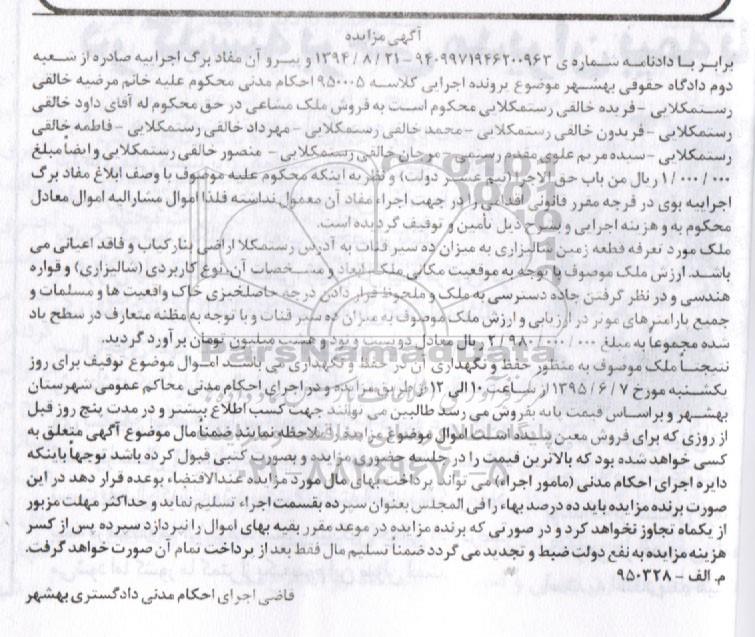 آگهی مزایده
برابر با دادنامه شماره ی ۹۴۰۹۹۷۱۹۴۶۲۰۰۹۶۳ - ۱۳۹۴/۸/۲۱ و پیرو آن مفاد برگ اجراییه صادره از شعبه
دوم دادگاه حقوقی بهشهر موضوع پرونده اجرایی کلاسه ۹۵۰۰۰۵ احکام مدنی محکوم علیه خانم مرضیه خالقی
رستمکلایی - فریده خالقی رستمکلایی محکوم است به فروش ملک مشاعی در حق محکوم له آقای داود خالقی
رستمکلایی - فریدون خالقی رستمکلایی - محمد خالقی رستمکلایی - مهرداد خالقی رستمکلایی - فاطمه خالقی
رستمکلایی - سیده مریم علوی مقدم رستمی - مرجان خالقی رستمکلایی - منصور خالقی رستمکلایی و ایضاً مبلغ
۱/۰۰۰/۰۰۰ ریال من باب حق الاجرا (نیم عشر دولت) و نظر به اینکه محکوم علیه موصوف با وصف ابلاغ مفاد برگ
اجراییه بوی در فرجه مقرر قانونی اقدامی را در جهت اجراء مفاد آن معمول نداشته فلذا اموال مشارالیه اموال معادل
محکوم به و هزینه اجرایی و بشرح ذیل تأمین و توقیف گردیده است.
ملک مورد تعرفه قطعه زمین شالیزاری به میزان ده سیر قنات به آدرس رستمکلا اراضی بنارکیاب و فاقد اعیانی می
باشد. ارزش ملک موصوف با توجه به موقعیت مکانی ملک، ابعاد و مشخصات آن، نوع کاربردی (شالیزاری) و قواره
هندسی و در نظر گرفتن جاده دسترسی به ملک و ملحوظ قرار دادن درجه حاصلخیزی خاک واقعیت ها و مسلمات و
جمیع پارامترهای موثر در ارزیابی و ارزش ملک موصوف به میزان ده سیر قنات و با توجه به مظنه متعارف در سطح یاد
شده مجموعاً به مبلغ ۲/۹۸۰/۰۰۰/۰۰۰ ریال معادل دویست و نود و هشت میلیون تومان برآورد گردید.
نتیجتاً ملک موصوف به منظور حفظ و نگهداری آن در حفظ و نگهداری می باشد اموال موضوع توقیف برای روز
یکشنبه مورخ ۱۳۹۵/۶/۷ از ساعت ۱۰ الی ۱۲ از طریق مزایده و در اجرای احکام مدنی محاکم عمومی شهرستان
بهشهر و براساس قیمت پایه بفروش می رسد طالبین می توانند جهت کسب اطلاع بیشتر و در مدت پنج روز قبل
از روزی که برای فروش معین شده است اموال موضوع مزایده را ملاحظه نمایند ضمناً مال موضوع آگهی متعلق به
کسی خواهد شده بود که بالاترین قیمت را در جلسه حضوری مزایده و بصورت کتبی قبول کرده باشد توجهاً باینکه
دایره اجرای احکام مدنی (مامور اجراء) می تواند پرداخت بهای مال مورد مزایده عندالاقتضاء بوعده قرار دهد در این
صورت برنده مزایده باید ده درصد بهاء را فی المجلس بعنوان سپرده بقسمت اجراء تسلیم نماید و حداکثر مهلت مزبور
از یکماه تجاوز نخواهد کرد و در صورتی که برنده مزایده در موعد مقرر بقیه بهای اموال را نپردازد سپرده پس از کسر
هزینه مزایده به نفع دولت ضبط و تجدید می گردد ضمناً تسلیم مال فقط بعد از پرداخت تمام آن صورت خواهد گرفت.
م. الف - ۹۵۰۳۲۸
قاضی اجرای احکام مدنی دادگستری بهشهر
ParsNamadData